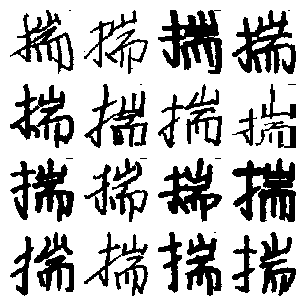 揣揣揣揣
揣揣揣揣
揣揣揣揣
揣揣揣揣